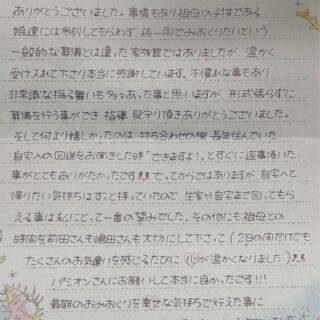 ありがとうございました。事情もあり祖母の子供である
娘達には参列してもらわず、孫一同でおみおくりたいという
一般的な葬儀とは違った家族葬ではありましたが、温かく
受け入れて下さり本当に感謝しています。不慣れな事もあり
非常識な振る舞いも多々あった事と思いますが、形式張らずに
葬儀を行う事ができ指導、見守り頂きありがとうございました。
そして何より嬉しかったのは打ち合わせの際、長年住んでいた
自宅への回送をお聞きした時"できますよ!"とすぐに返事頂いた
事がとてもありがたかったです!! 亡ってからではありますが、自宅へと
帰りたい気持ちはずっと持っていたので、生家や自宅まで回ってもら
える事は私にとって一番の望みでした。その他にも祖母との
時間を前田さんも嶋田さんも大切にして下さって(2日の間だけでも
たくさんのお気遣いを感じるたびに心が温かくなりました)!!
パシオンさんにお願いして本当に良かったです!!!
最期のおみおくりを幸せな気持ちで行えた事に